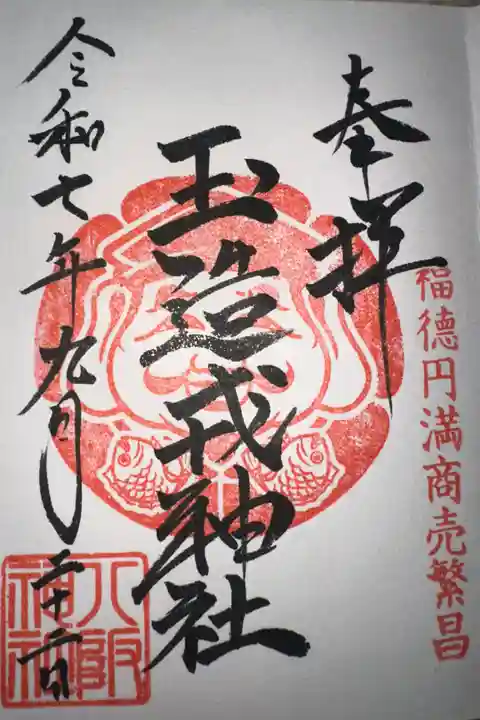 奉拝
福徳円満商売繁昌
玉造戎神社
令和七年九月二十六日